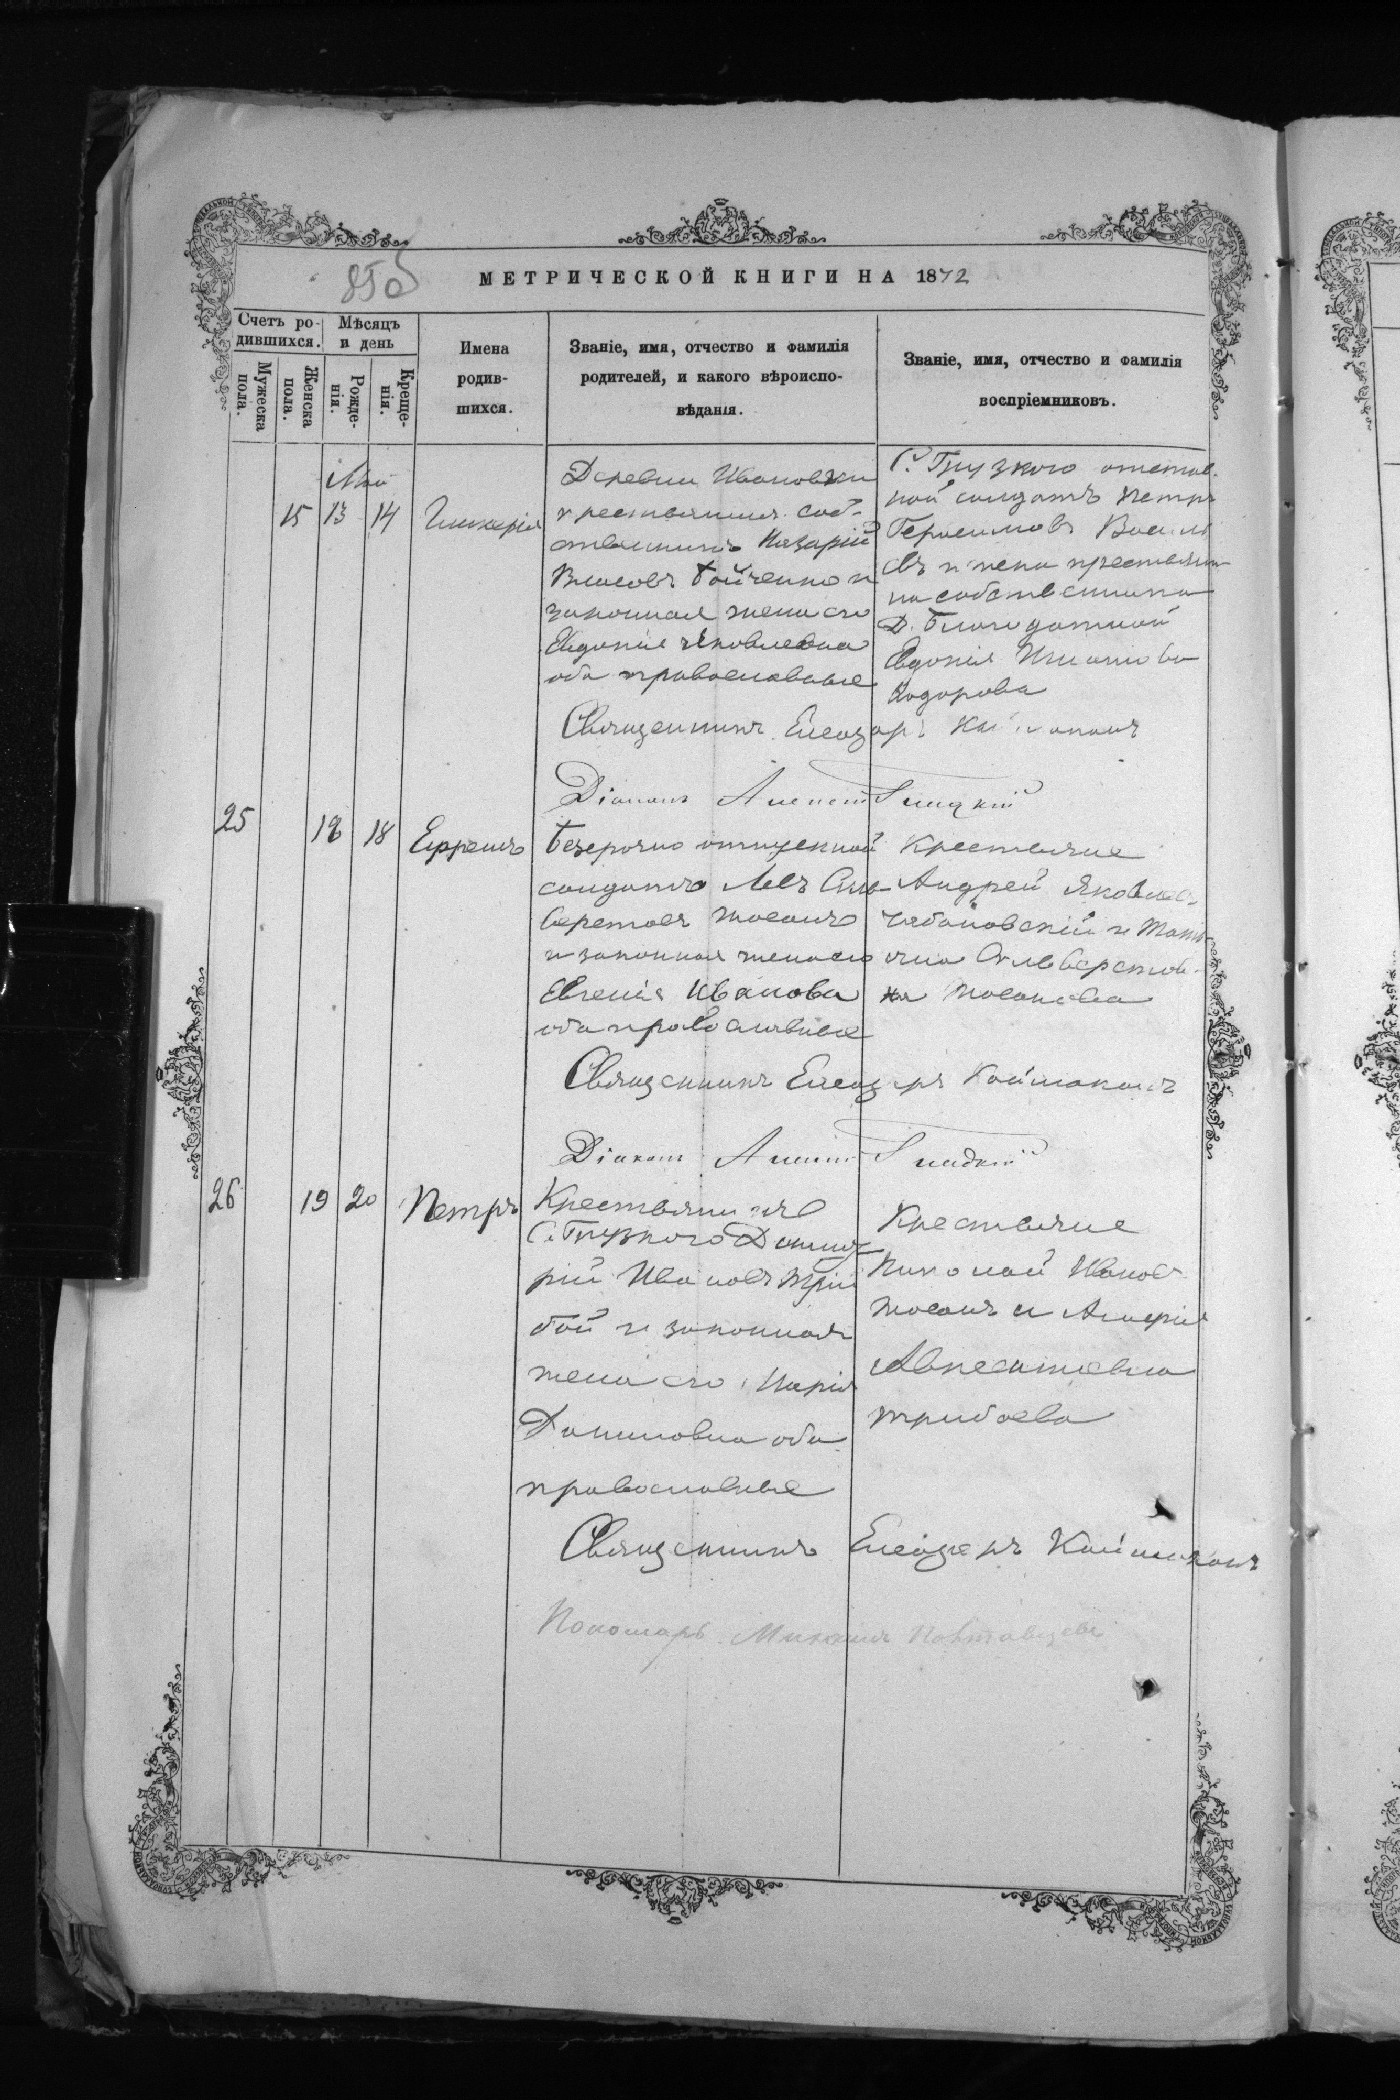 850
МЕТРИЧЕСКОЙ КНИГИ НА 1872
Счетъ ро-
дившихся.
Мѣсяцъ
и день
Мужеска
пола.
Женска
пола.
Рожде-
нія.
Креще-
нія.
Имена
родив-
шихся.
Званіе, имя, отчество и фамилія
родителей, и какого вѣроиспо-
вѣданія.
Званіе, имя, отчество и фамилія
воспріемниковъ.
Май
15 13 14 Гликерія
Деревни Ивановки
крестьянинъ соб-
ственникъ Назарій
Власовъ Бойченко и
законная жена его
Евдокія Яковлевна
оба православные
С. Грузкого отстав-
ной солдатъ Петръ
Герасимовъ Василь
евъ и жена крестьяни
на собственника
Д. Благодатной
Евдокія
Ходорова
Священникъ Елеазаръ Каймаканъ
Діаконъ Алексій
25 18 Ефремъ
Безсрочно отпускной
солдатъ Левъ Сили-
верстовъ Мосанъ
и законная жена его
Евгенія Иванова
оба православные
Крестьяне
Андрей Яковлев.
и Тать-
яна Сильверстов-
на Мосанова
Священникъ Елеазаръ Каймаканъ
Діаконъ Алексій
26 19 20 Петръ
Крестьянинъ
С. Грузкого Димит
рій Ивановъ Три
бой и законная
жена его Марія
Даниловна оба
православные
Крестьяне
Николай Иванов
Мосанъ и Марія
Авксентьевна
Трибоева
Священникъ Елеазаръ Каймаканъ
Пономарь Михаилъ